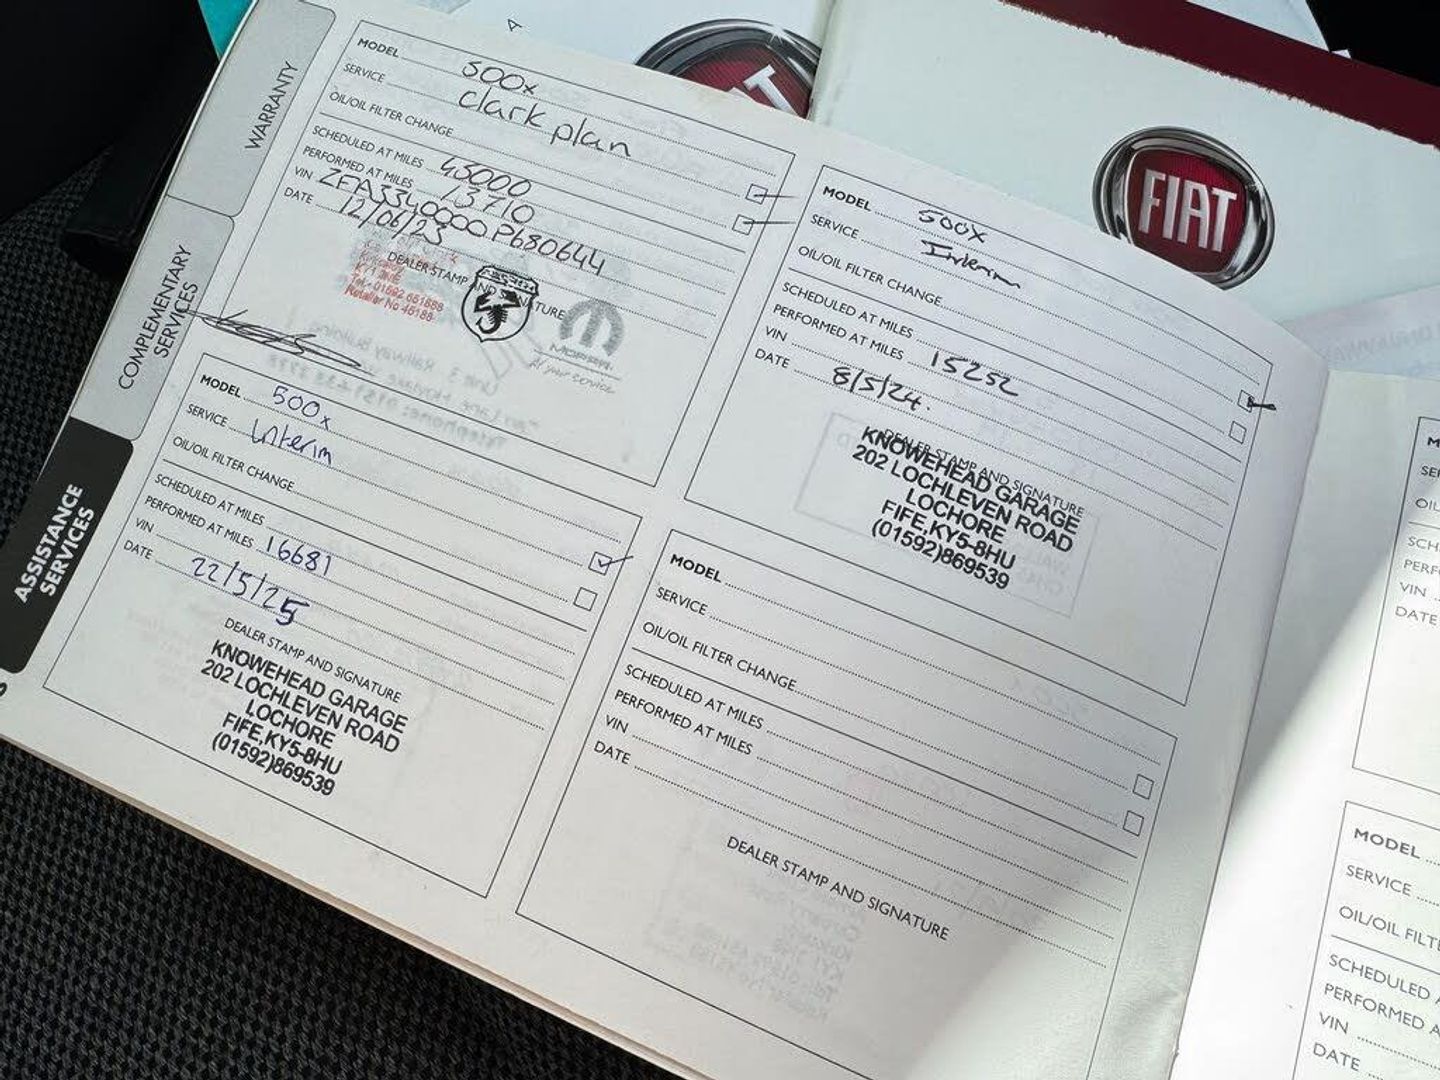 WARRANTY
COMPLEMENTARY
SERVICES
ASSISTANCE
SERVICES
MODEL 500x
SERVICE clark plan
OIL/OIL FILTER CHANGE
SCHEDULED AT MILES 45000
PERFORMED AT MILES 13710
VIN ZFA3340000P680644
DATE 12/06/23
DEALER STAMP AND SIGNATURE
KY1 3NE
Tel - 01592 651888
Retailer No 46188
ABARTH
MOPAR
at your service
MODEL 500x
SERVICE Interim
OIL/OIL FILTER CHANGE
SCHEDULED AT MILES
PERFORMED AT MILES 15252
VIN
DATE 8/5/24.
DEALER STAMP AND SIGNATURE
KNOWEHEAD GARAGE
202 LOCHLEVEN ROAD
LOCHORE
FIFE.KY5-8HU
(01592)869539
MODEL 500x
SERVICE Interim
OIL/OIL FILTER CHANGE
SCHEDULED AT MILES
PERFORMED AT MILES 16681
VIN
DATE 22/5/25
DEALER STAMP AND SIGNATURE
KNOWEHEAD GARAGE
202 LOCHLEVEN ROAD
LOCHORE
FIFE.KY5-8HU
(01592)869539
MODEL
SERVICE
OIL/OIL FILTER CHANGE
SCHEDULED AT MILES
PERFORMED AT MILES
VIN
DATE
DEALER STAMP AND SIGNATURE
FIAT
VIN
DATE
MODEL
SERVICE
OIL/OIL FILT
SCHEDULED
PERFORMED
VIN
DATE